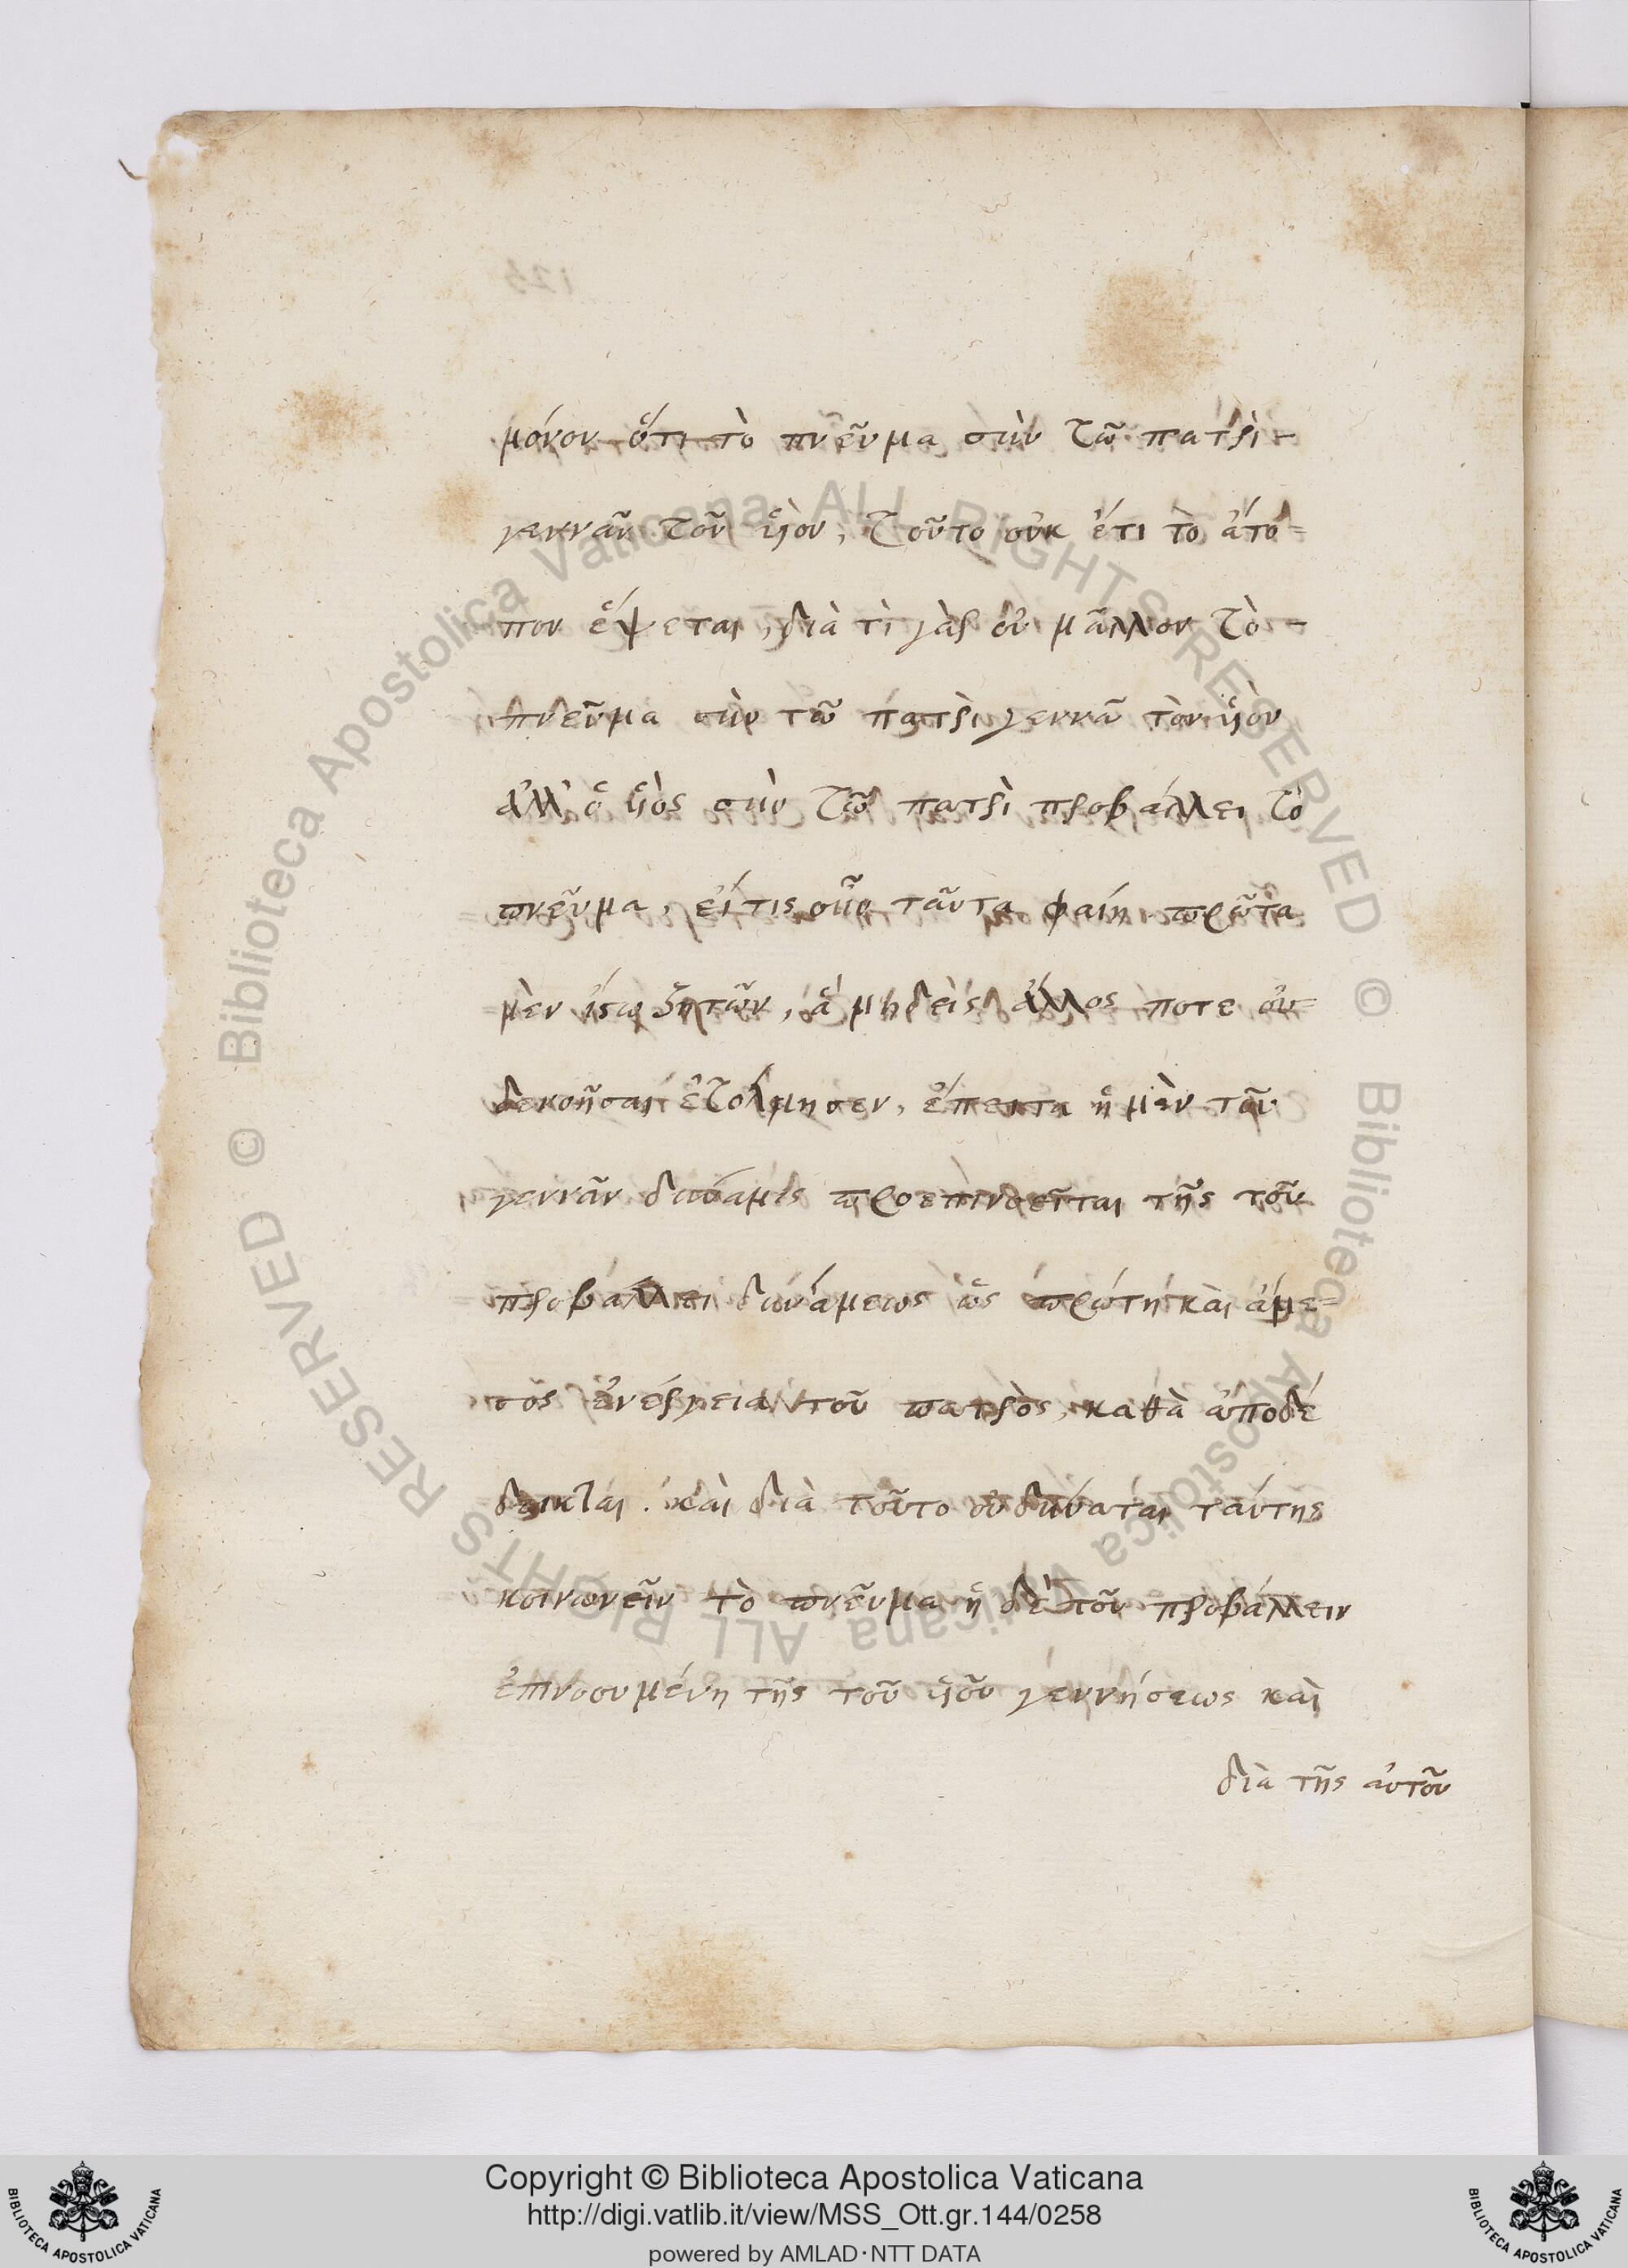 μόνον ὅτι τὸ πνεῦμα σὺν τῶ πατρὶ
γεννᾶν τοῦ ὑϊὸν, τοῦτο οὐκ ἔτι τὸ ἄτο=
πον ἕψεται, διὰ τὶ γὰρ οὐ μᾶλλον τὸ
πνεῦμα σὺν τῶ πατρὶ γεννᾶ τὸν ὑϊὸν
ἀλλ' ὁ ὑϊὸς σὺν τῶ πατρὶ προβάλλει τὸ
πνεῦμα, εἴτις οὖν ταῦτα φαίη πρῶτα
μὲν ἴστω ζητῶν, ἃ μηδεὶς ἄλλος ποτε οὐ=
δενοῆσαι ἐτόλμησεν, ἔπειτα ἡ μὲν τοῦ
γεννᾶν δύναμις προεπινοεῖται τῆς τοῦ
προβάλλει δυνάμεως ὡς πρώτη καὶ ἄμε=
σος ἐνέργεια τοῦ πατρὸς, καθὰ ἀποδέ
δεικται. καὶ διὰ τοῦτο οὐ δύναται ταύτης
κοινωνεῖν τὸ πνεῦμα ἡ δὲ τοῦ προβάλλειν
ἐπινοουμένη τῆς τοῦ ὑϊοῦ γεννήσεως καὶ
διὰ τῆς αὐτοῦ
© Biblioteca Apostolica Vaticana ALL RIGHTS RESERVED © Biblioteca Apostolica Vaticana ALL RIGHTS RESERVED
Copyright © Biblioteca Apostolica Vaticana
http://digi.vatlib.it/view/MSS_Ott.gr.144/0258
powered by AMLAD·NTT DATA
BIBLIOTECA APOSTOLICA VATICANA
BIBLIOTECA APOSTOLICA VATICANA